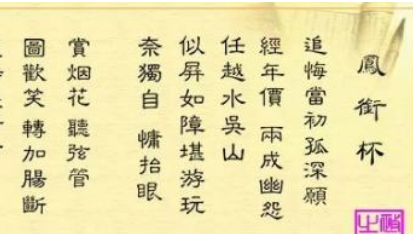 鳳銜杯
追悔當初孤深願
經年價 兩成幽怨
任越水吳山
似屏如障堪游玩
奈獨自 慵抬眼
賞烟花 聽弦管
圖歡笑 轉加腸斷